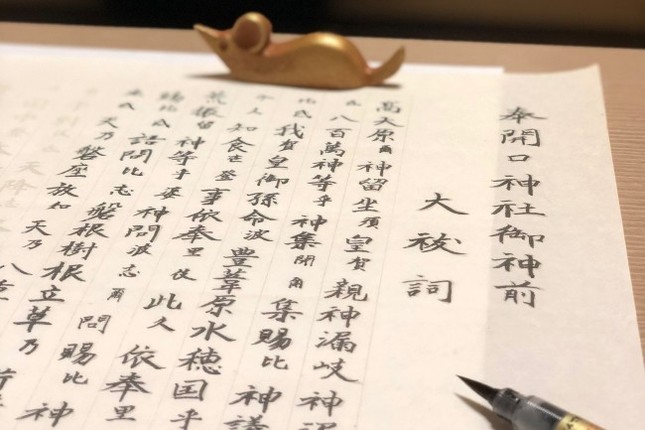 奉開口神社御神前
大祓詞
高天原爾神留坐須皇賀親神漏岐神
八百萬神等乎神集閇爾集賜比神議
比氐我賀皇御孫命波豊葦原水穂国乎
久知食世登事依奉里伎此久依奉里
荒振留神等乎婆神問波志爾問賜比神
賜比氐語問比志磐根樹根立草乃
氐天乃磐座放知天乃八重